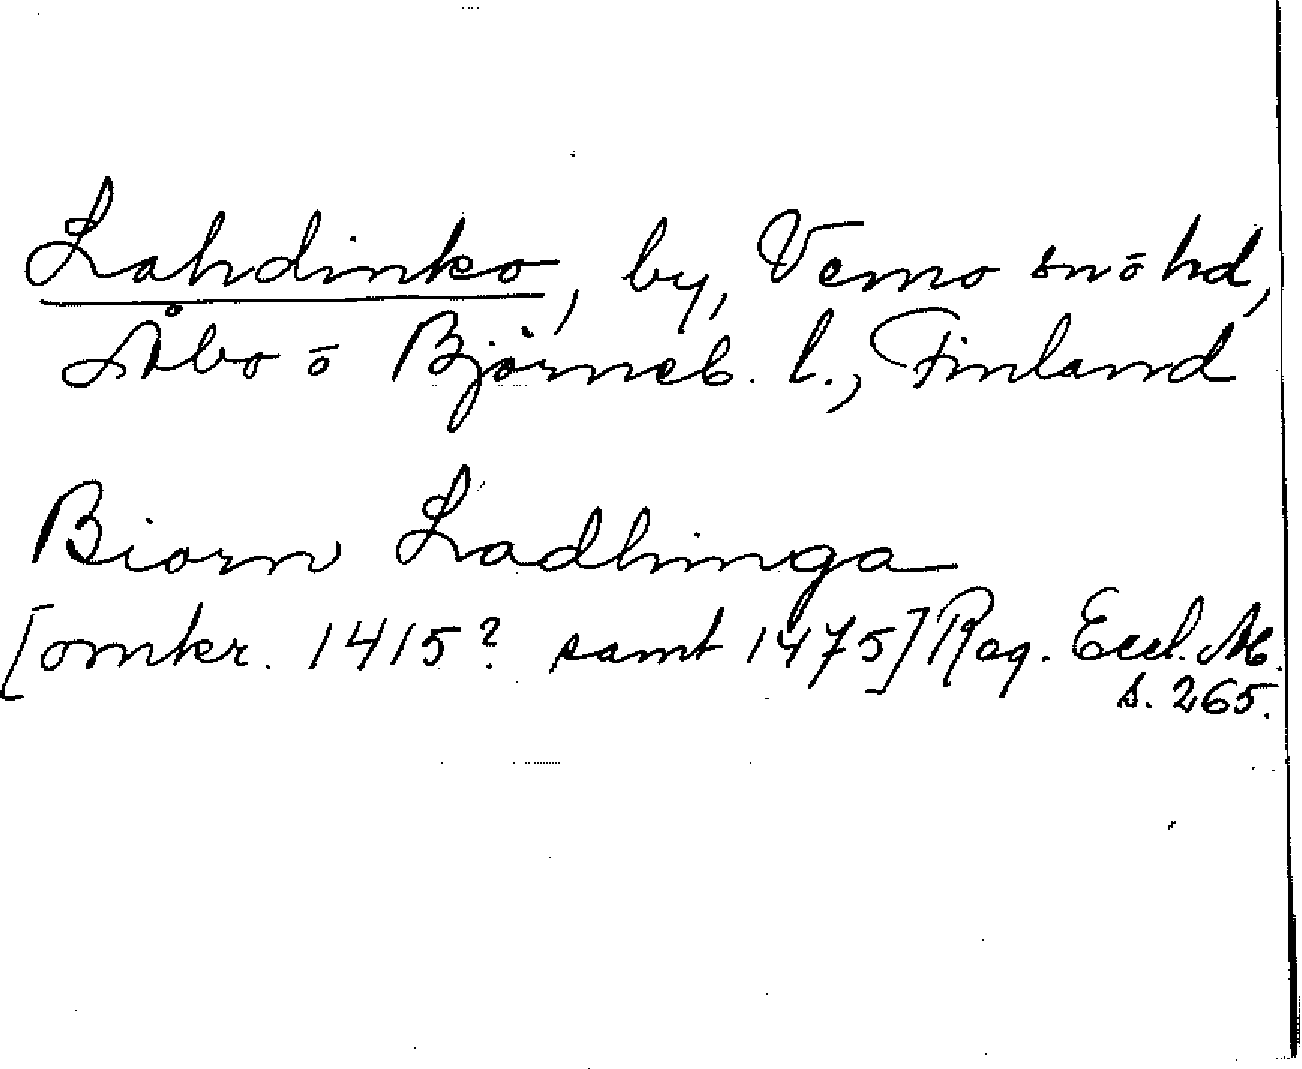 Lahdinko, by, Vemo sn ō hd,
Åbo ō Björneb. l., Finland
Biorn Ladhinga
[omkr. 1415? samt 1475] Reg. Eccl. Ab.
s. 265.